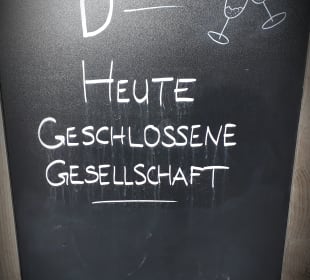 D
HEUTE
GESCHLOSSENE
GESELLSCHAFT